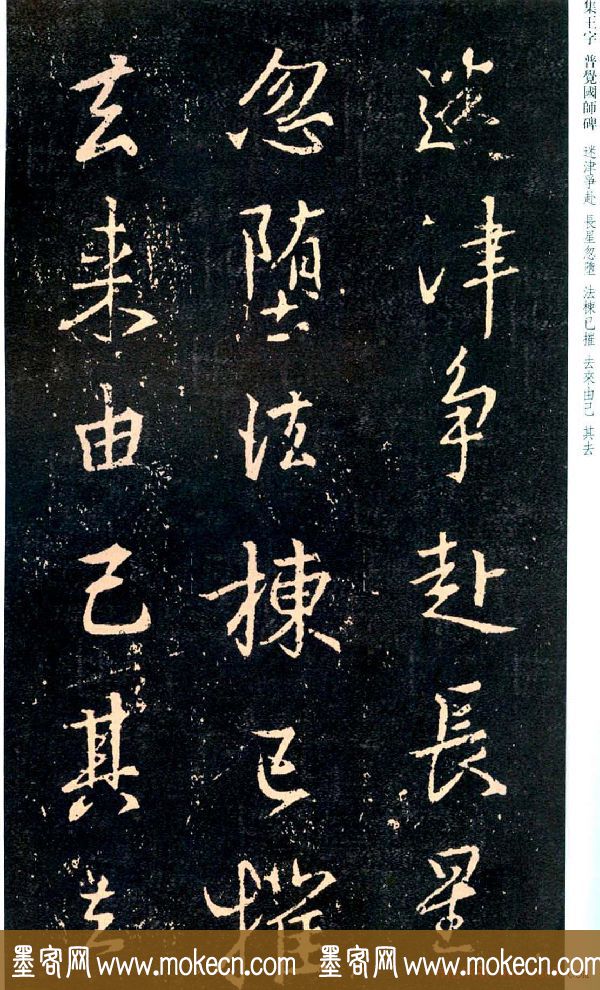 集王字 普覺國師碑 迷津爭赴 長星忽墮 法棟已摧 去來由己 其去
迷津争赴長星
忽墮法棟已摧
去来由己其去
墨客网 www.mokecn.com 墨客网 www.mokecn.com 墨客网